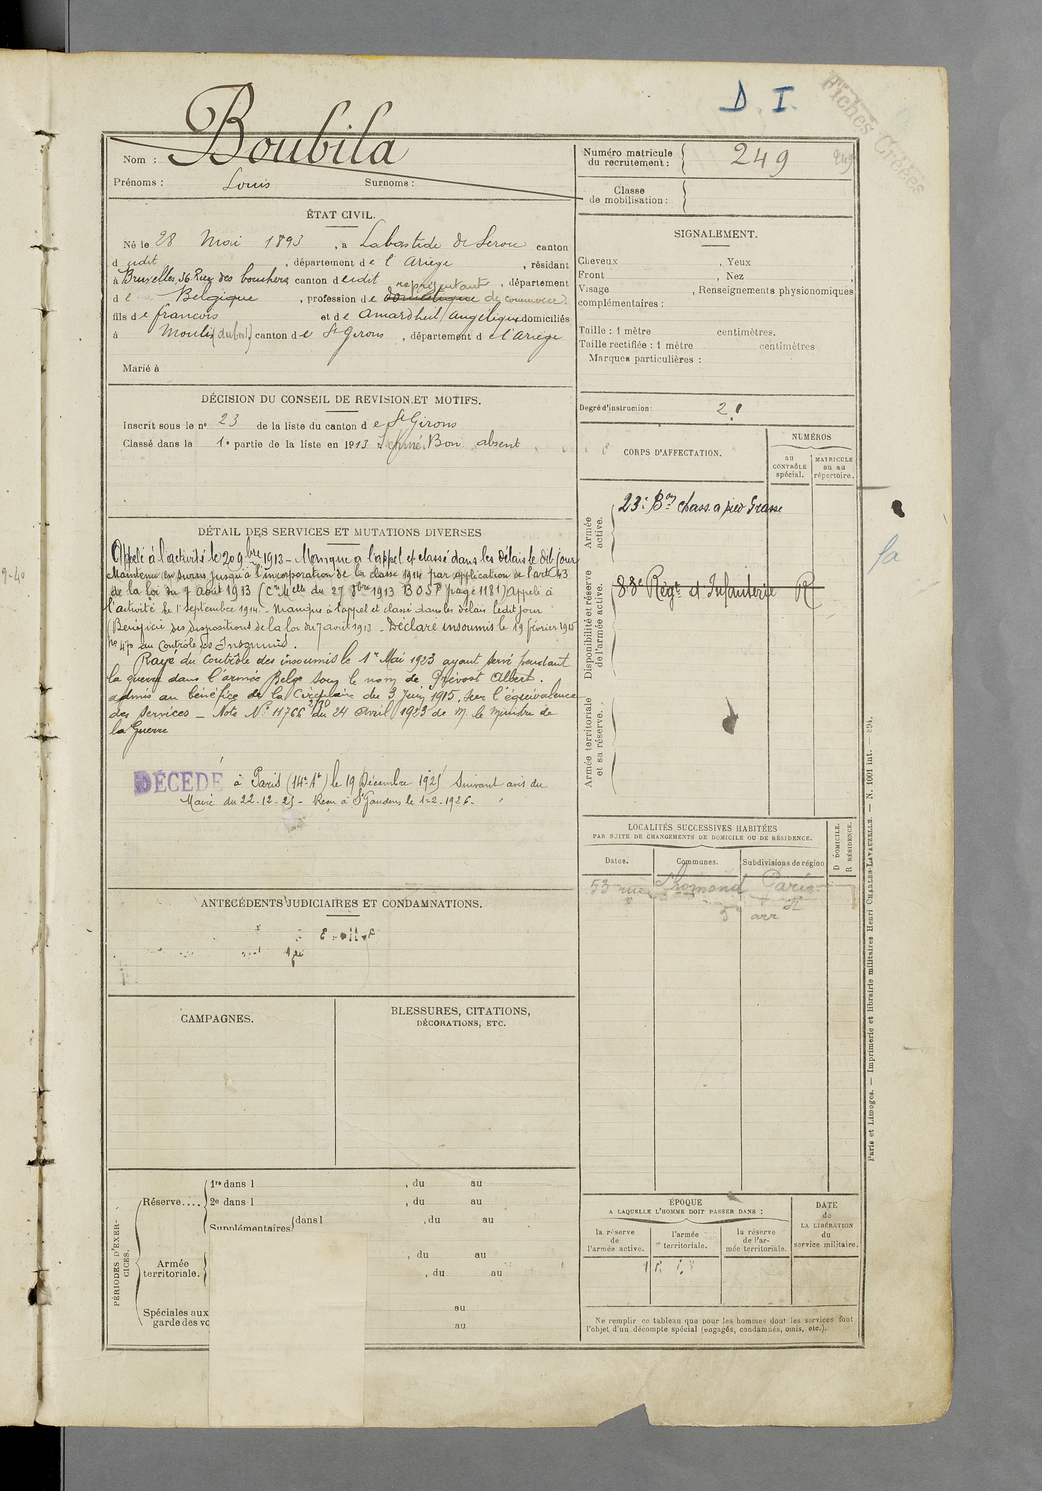 D. I.
Fiches Créées
Nom : Boubila
Prénoms : Louis Surnoms :
Numéro matricule du recrutement : 249
249
Classe de mobilisation :
ÉTAT CIVIL.
Né le 28 Mai 1893, a Labastide de Serou canton
dudit, département de l'Ariège, résidant
à Bruxelles, 36 Rue des bouchers canton dudit, département
représentant
d Belgique, profession de domestique de commerce
fils de françois et de Amardheil Angélique domiciliés
à Moulis canton de St Girons, département de l'Ariège
Marié à
SIGNALEMENT.
Cheveux , Yeux ,
Front , Nez ,
Visage , Renseignements physionomiques
complémentaires :
Taille : 1 mètre centimètres.
Taille rectifiée : 1 mètre centimètres
Marques particulières :
Degré d'instruction : 2
DÉCISION DU CONSEIL DE REVISION ET MOTIFS.
Inscrit sous le no 23 de la liste du canton de St Girons
Classé dans la 1e partie de la liste en 1913 Bon absent
CORPS D'AFFECTATION.
NUMÉROS
au CONTRÔLE spécial.
MATRICULE ou au répertoire.
Armée active.
23e Bon chass. a pied Grasse
Disponibilité et réserve de l'armée active.
88e Régt d'Infanterie R
Armée territoriale et sa réserve.
fa
9-40
DÉTAIL DES SERVICES ET MUTATIONS DIVERSES
Appelé à l'activité le 20 9bre 1913 - Manque à l'appel et classé dans les délais le dit jour
Maintenu en sursis jusqu'à l'incorporation de la classe 1914 par application de l'art 43
de la loi du 7 Août 1913 (Cre Melle du 27 8bre 1913 B O S P page 1181) Appelé à
l'activité le 1er septembre 1914 - Manque à l'appel et classé dans les délais ledit jour
(Bénéficie des dispositions de la loi du 7 août 1913 - Déclaré insoumis le 19 février 1915
no 470 au Contrôle des Insoumis.
Rayé du Contrôle des insoumis le 1er Mai 1923 ayant servi pendant
la guerre dans l'armée Belge sous le nom de Prévost Albert.
admis au bénéfice de la Circulaire du 3 Juin 1915, sur l'équivalence
des services - Note No 11766 2/10 du 24 Avril 1923 de M. le Ministre de
la Guerre
DÉCÉDÉ à Paris (14e Ar) le 19 Décembre 1925 Suivant avis du
Maire du 22-12-25 - Reçu à St Gaudens le 1-2-1926 -
LOCALITÉS SUCCESSIVES HABITÉES
PAR SUITE DE CHANGEMENTS DE DOMICILE OU DE RÉSIDENCE.
Dates. Communes. Subdivisions de région
D DOMICILE.
R RÉSIDENCE.
53 rue Lhomond Paris
5e arr
ANTÉCÉDENTS JUDICIAIRES ET CONDAMNATIONS.
CAMPAGNES.
BLESSURES, CITATIONS,
DÉCORATIONS, ETC.
PÉRIODES D'EXERCICES.
Réserve.... 1re dans l , du au
2e dans l , du au
Supplémentaires dans l , du au
Armée territoriale. , du au
, du au
Spéciales aux au
garde des vo au
ÉPOQUE
A LAQUELLE L'HOMME DOIT PASSER DANS :
la réserve de l'armée active.
l'armée territoriale.
la réserve de l'armée territoriale.
DATE de LA LIBÉRATION du service militaire.
Ne remplir ce tableau que pour les hommes dont les services font
l'objet d'un décompte spécial (engagés, condamnés, omis, etc.).
Paris et Limoges. — Imprimerie et librairie militaires Henri CHARLES-LAVAUZELLE. — N. 1001 int. — 894.